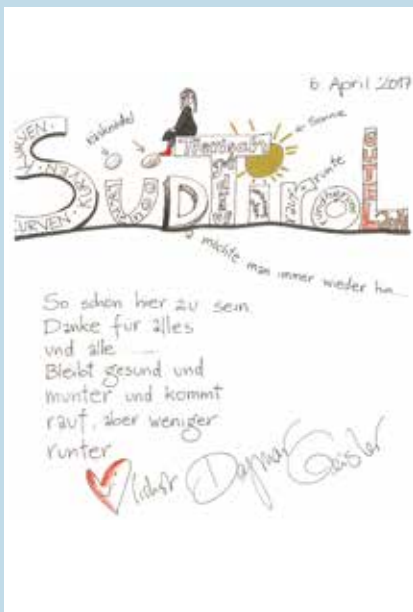 6. April 2017
Sonne
KURVEN · KURVEN · KURVEN
SÜDTIROL
GUTEL
möchte man immer wieder hin....
So schön hier zu sein.
Danke für alles
und alle .....
Bleibt gesund und
munter und kommt
rauf, aber weniger
runter
lichst Dagmar Geisler